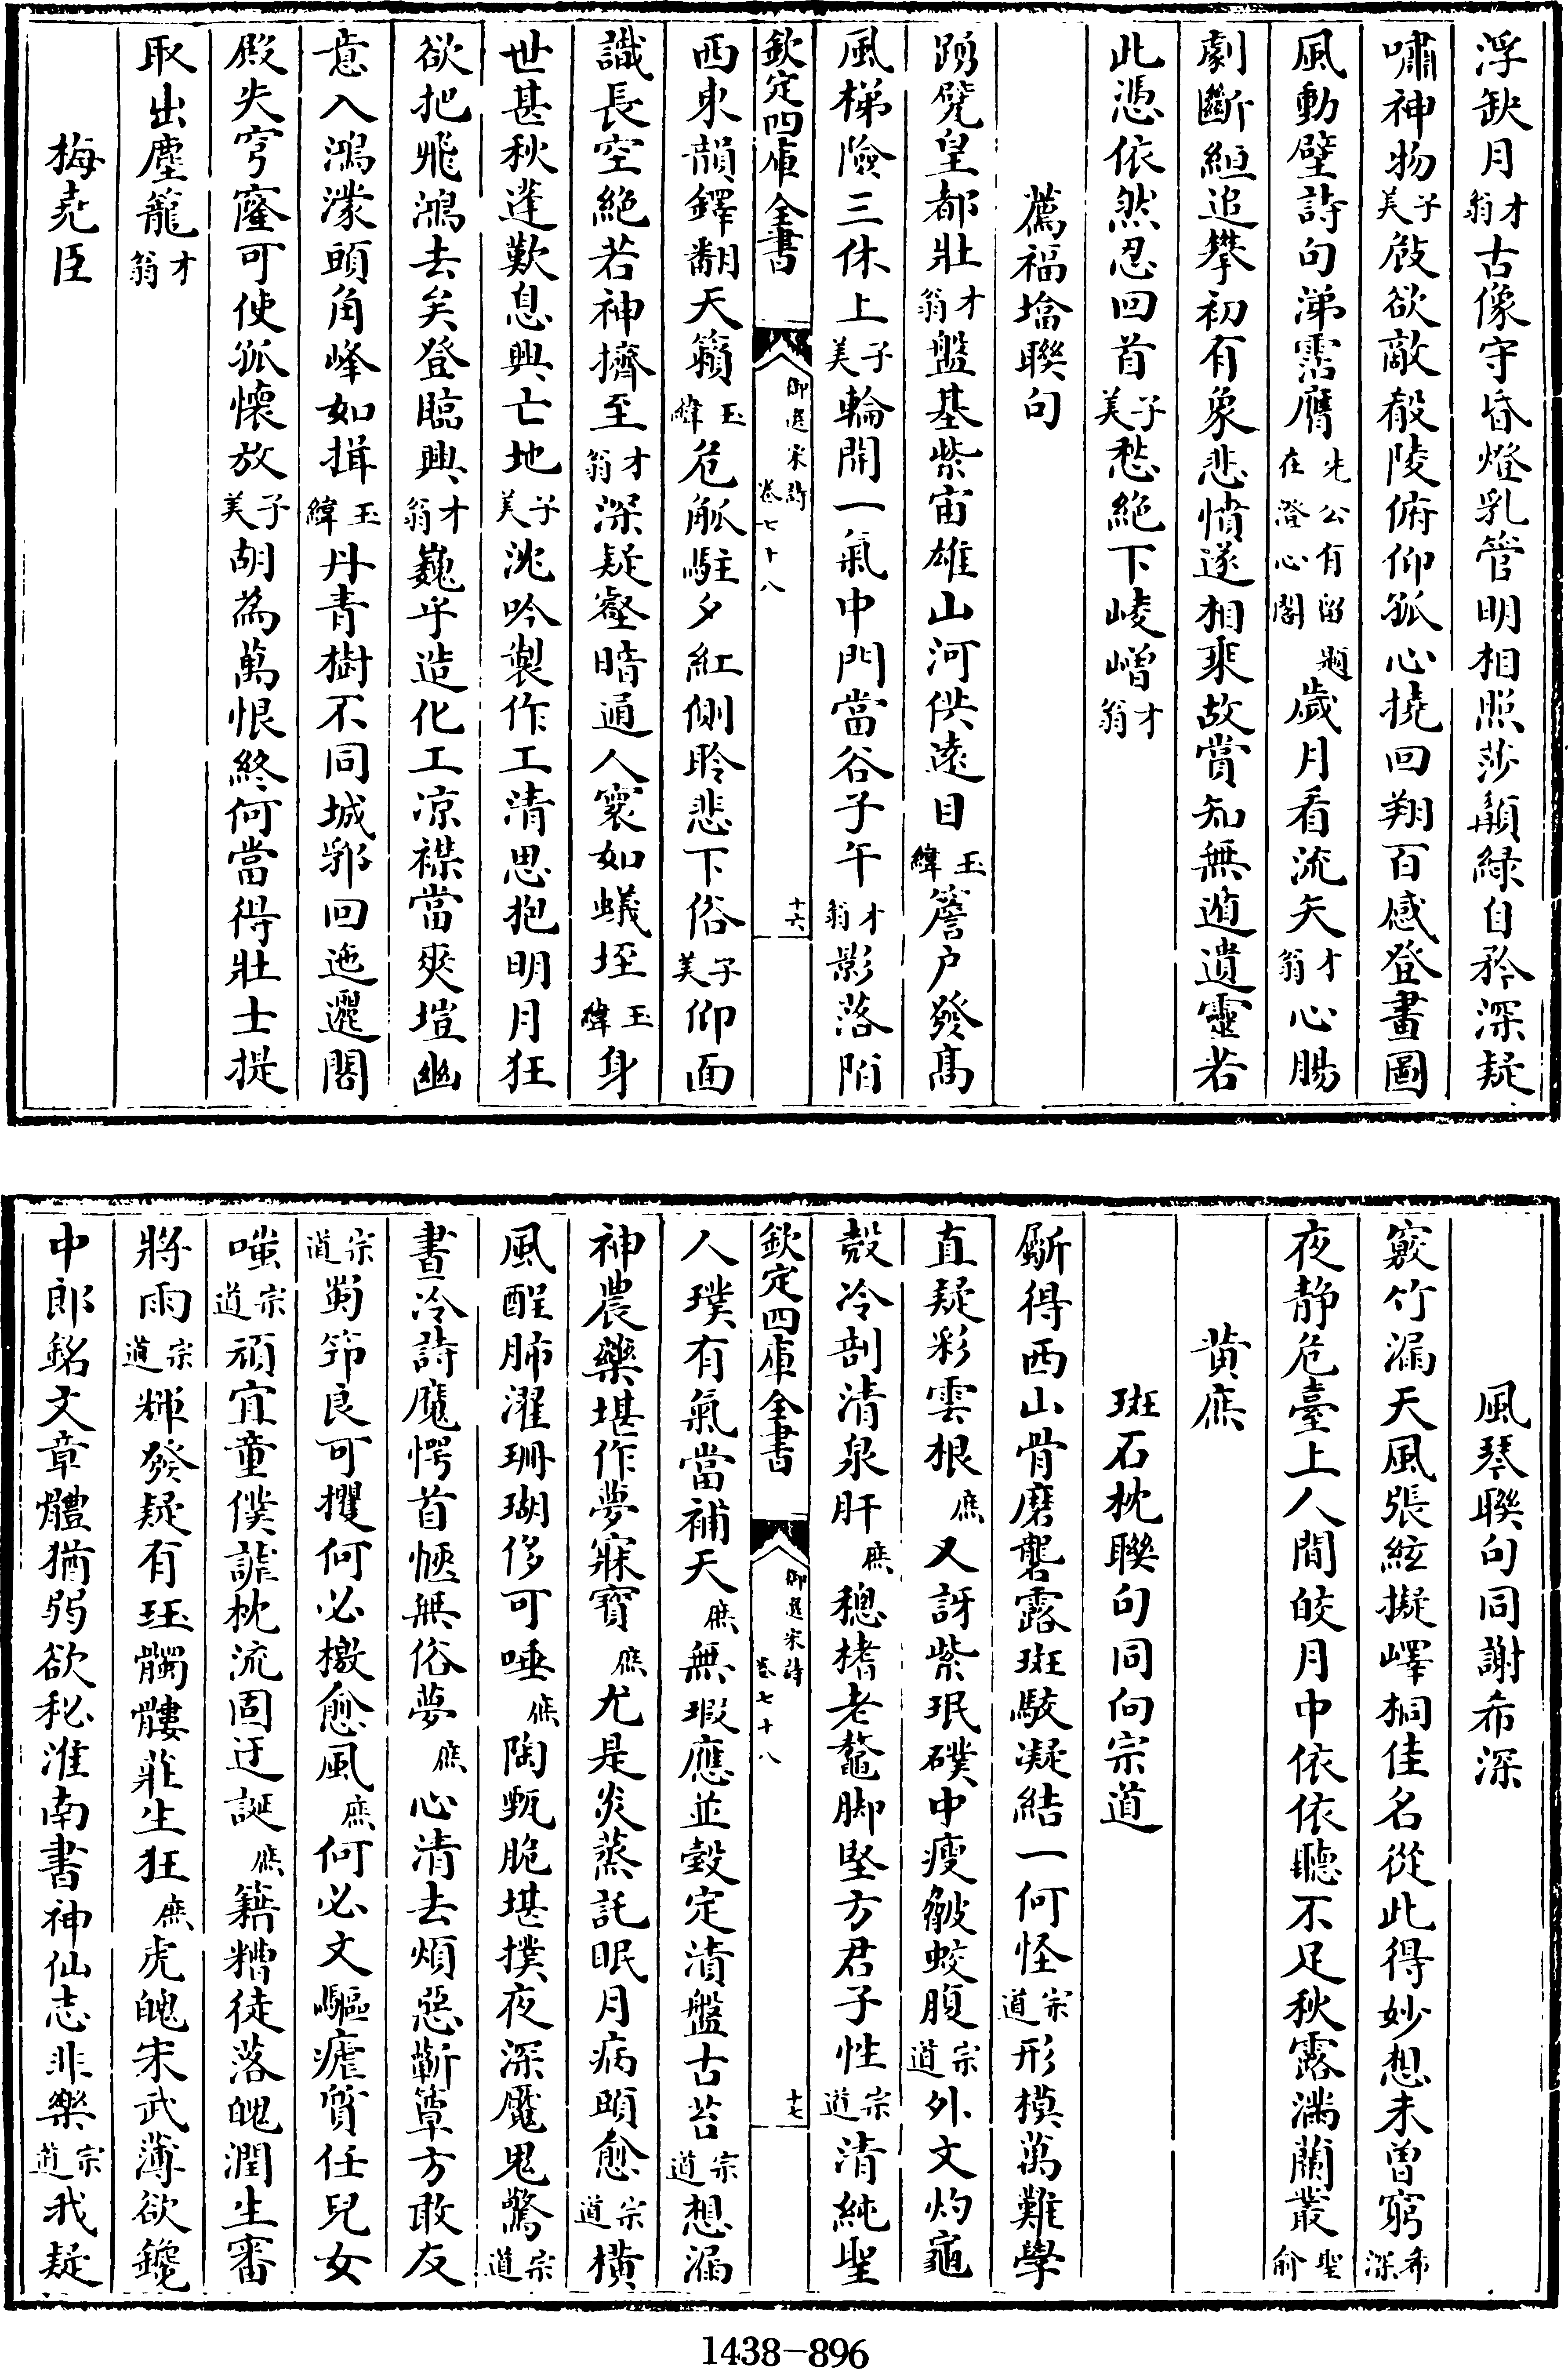 浮缺月才翁古像守昏燈乳管明相照莎顛綠自矜深疑
嘯神物子美殷欲敵觳陵俯仰孤心撓回翔百感登畫圖
風動壁詩句涕霑膺先公有留題在澄心閣歲月看流矢才翁心腸
劇斷絙追攀初有象悲憤遂相乘故賞知無遁遺靈若
此憑依然忍回首子美愁絕下崚嶒才翁
薦福塔聯句
踴甓皇都壯才翁盤基紫宙雄山河供遠目玉緯簷戶發高
風梯險三休上子美輪開一氣中門當谷子午才翁影落陌
欽定四庫全書
御選宋詩
卷七十八
十六
西東韻鐸翻天籟玉緯危觚駐夕紅側聆悲下俗子美仰面
識長空絕若神擠至才翁深疑壑暗通人寰如蟻垤玉緯身
世甚秋蓬歎息興亡地子美沈吟製作工清思抱明月狂
欲把飛鴻去矣登臨興才翁巍乎造化工涼襟當爽塏幽
意入鴻濛頭角峰如揖玉緯丹青樹不同城郭回迤邐閣
殿失穹窿可使孤懷放子美胡為萬恨終何當得壯士提
取出塵籠才翁
梅堯臣
風琴聯句同謝希深
竅竹漏天風張絃擬嶧桐佳名從此得妙想未曾窮希深
夜靜危臺上人間皎月中依依聽不足秋露滿蘭叢聖俞
黃庶
斑石枕聯句同向宗道
斸得西山骨磨礱露斑駮凝結一何怪宗道形模萬難學
直疑彩雲根庶又訝紫珉礫中瘦皴蛟腹宗道外文灼龜
殼冷剖清泉肝庶穩楮老鼇腳堅方君子性宗道清純聖
欽定四庫全書
御選宋詩
卷七十八
十七
人璞有氣當補天庶無瑕應並瑴定漬盤古苔宗道想漏
神農藥堪作夢寐寶庶尤是炎蒸託眠月病頭愈宗道橫
風酲肺濯珊瑚侈可唾庶陶甄脆堪撲夜深魘鬼驚宗道
晝冷詩魔愕首愜無俗夢庶心清去煩惡蘄簟方敢友
宗道蜀筇良可攫何必檄愈風庶何必文驅瘧質任兒女
嗤宗道頑宜童僕謔枕流固迂誕庶籍糟徒落魄潤生審
將雨宗道輝發疑有玨髑髏莊生狂庶虎魄宋武薄欲鑱
中郎銘文章體猶弱欲秘淮南書神仙志非樂宗道我疑
1438-896